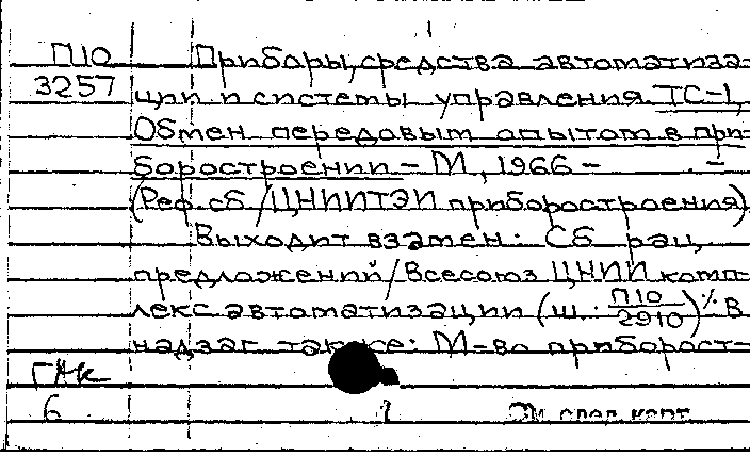 П10 Приборы, средства автоматиза-
3257 ции и системы управления. ТС-1,
Обмен передовым опытом в при-
боростроении – М, 1966 –
(Реф. сб / ЦНИИТЭИ приборостроения)
Выходит взамен: Сб рац.
предложений / Всесоюз ЦНИИ комп-
лекс автоматизации (ш. П10
2910) % В
надзаг также: М-во приборост-
6. См след карт